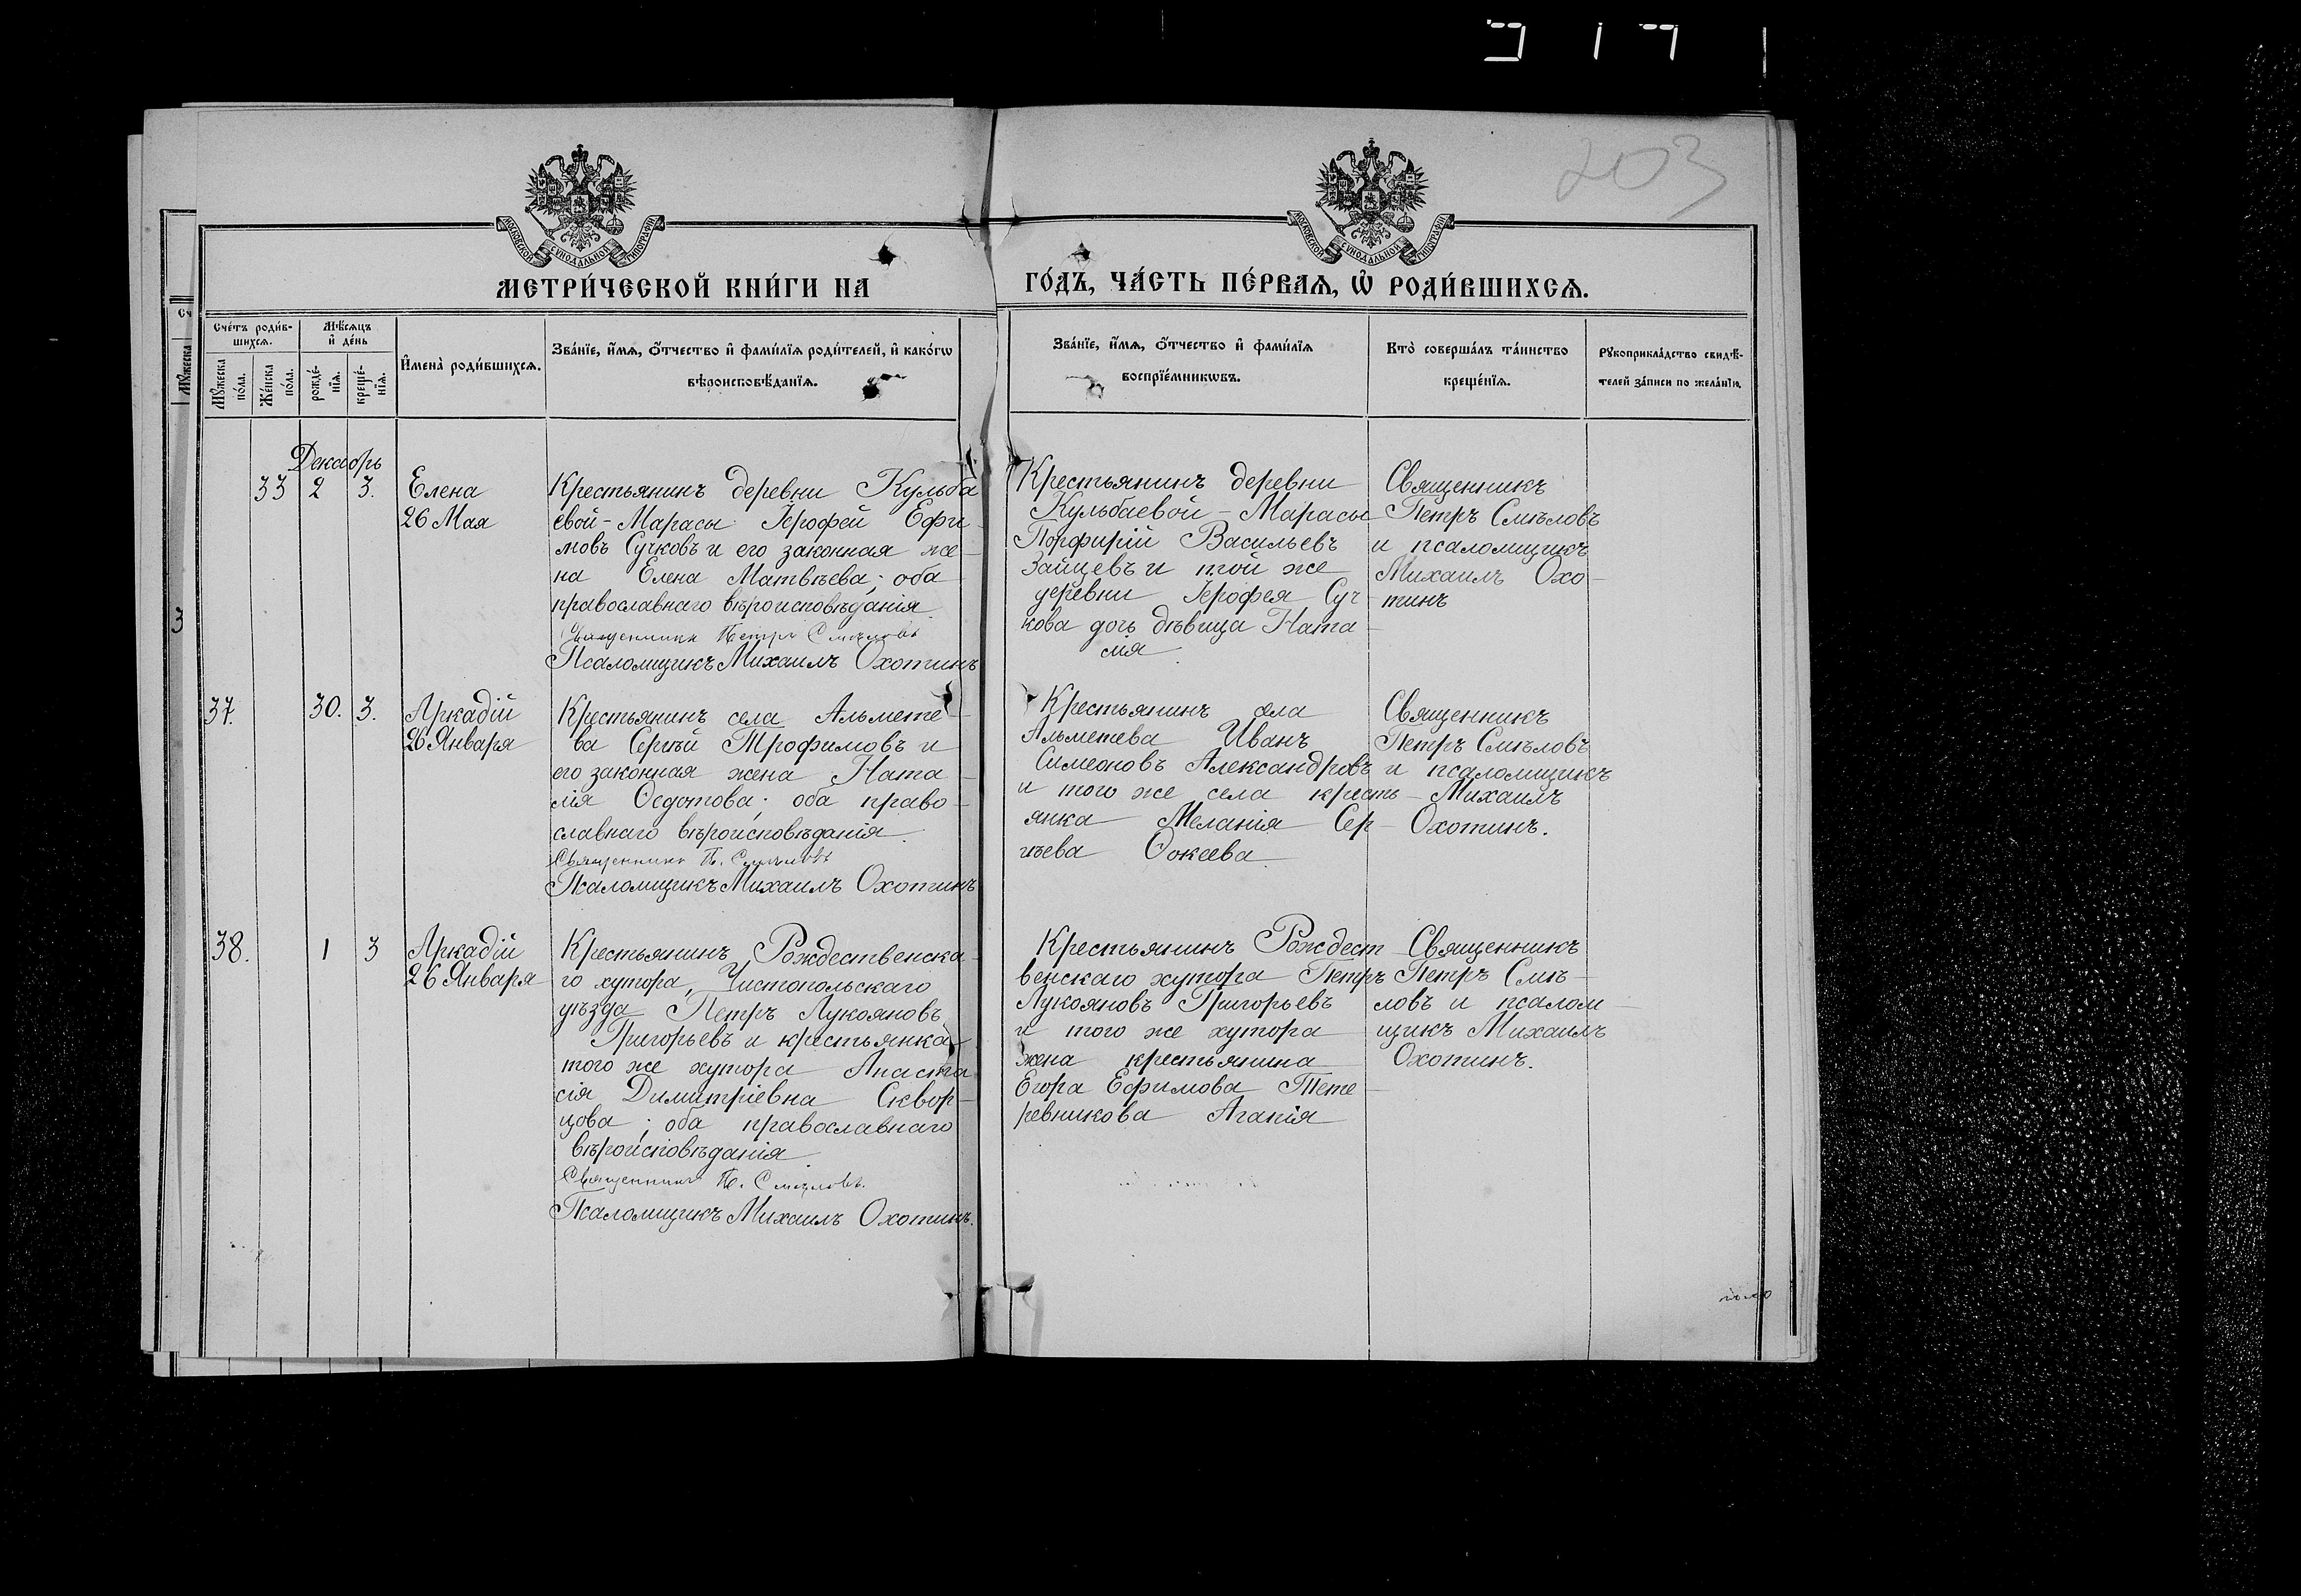 203
МОСКОВСКОЙ СУНОДАЛЬНОЙ ТИПОГРАФІИ
МОСКОВСКОЙ СУНОДАЛЬНОЙ ТИПОГРАФІИ
МЕТРИ́ЧЕСКОЙ КНИ́ГИ НА
ГО́ДЪ, ЧА́СТЬ ПЕ́РВАѦ, Ѡ҆ РОДИ́ВШИХСѦ.
Сче́тъ роди́в-
шихсѧ.
Мѣ́сѧцъ
и҆ де́нь
Мꙋ́жеска
по́ла.
Же́нска
по́ла.
рожде́-
нїѧ.
креще́-
нїѧ.
И҆мена̀ роди́вшихсѧ.
Зва́нїе, и҆́мѧ, ѻ҆́тчество и҆ фами́лїѧ роди́телей, и҆ како́гѡ
вѣроисповѣ́данїѧ.
Зва́нїе, и҆́мѧ, ѻ҆́тчество и҆ фами́лїѧ
воспрїе́мникѡвъ.
Кто̀ соверша́лъ та́инство
креще́нїѧ.
Рꙋкоприкла́дство свидѣ́-
телей за́писи по жела́нїю.
Декабрь
33 2 3.
Елена
26 Мая
Крестьянинъ деревни Кульба
евой-Марасы Іерофей Ефи-
мовъ Сучковъ и его законная же-
на Елена Матвѣева; оба
православнаго вѣроисповѣданія
Священникъ Петръ Смѣловъ
Псаломщикъ Михаилъ Охотинъ
Крестьянинъ деревни
Кульбаевой-Марасы
Порфирій Васильевъ
Зайцевъ и той же
деревни Іерофея Суч-
кова дочь дѣвица Ната-
лія
Священникъ
Петръ Смѣловъ
и псаломщикъ
Михаилъ Охо-
тинъ
37. 30. 3.
Аркадій
26 Января
Крестьянинъ села Альмете-
ва Сергѣй Трофимовъ и
его законная жена Ната-
лія Ѳедотова; оба право-
славнаго вѣроисповѣданія
Священникъ П. Смѣловъ
Псаломщикъ Михаилъ Охотинъ
Крестьянинъ села
Альметева Иванъ
Симеоновъ Александровъ
и того же села кресть-
янка Меланія Сер-
гѣева
Священникъ
Петръ Смѣловъ
и псаломщикъ
Михаилъ
Охотинъ.
38. 1 3
Аркадій
26 Января
Крестьянинъ Рождественска-
го хутора, Чистопольскаго
уѣзда Петръ Лукояновъ
Григорьевъ и крестьянка
того же хутора Анаста
сія Димитріевна Сквор-
цова; оба православнаго
вѣроисповѣданія
Священникъ П. Смѣловъ.
Псаломщикъ Михаилъ Охотинъ.
Крестьянинъ Рождест-
венскаго хутора Петръ
Лукояновъ Григорьевъ
и того же хутора
жена крестьянина
Егора Ефимова Тете-
ревникова Агапія
Священникъ
Петръ Смѣ-
ловъ и псалом-
щикъ Михаилъ
Охотинъ.